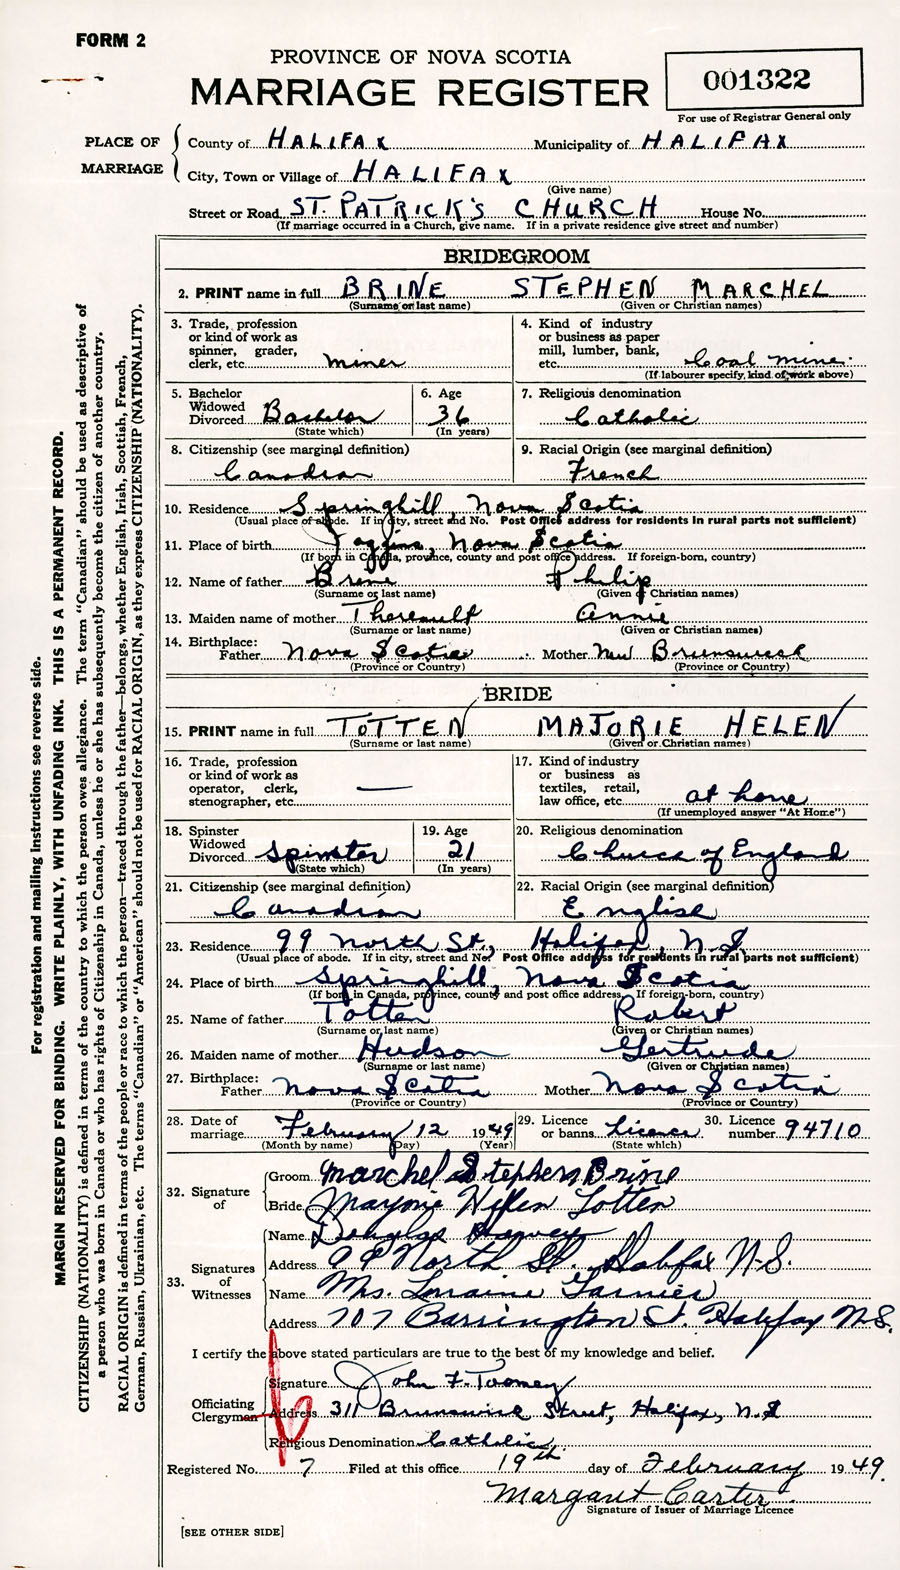 FORM 2
PROVINCE OF NOVA SCOTIA
MARRIAGE REGISTER
001322
For use of Registrar General only
PLACE OF MARRIAGE
County of HALIFAX Municipality of HALIFAX
City, Town or Village of HALIFAX
(Give name)
Street or Road ST. PATRICK'S CHURCH House No.
(If marriage occurred in a Church, give name. If in a private residence give street and number)
BRIDEGROOM
2. PRINT name in full BRINE STEPHEN MARCHEL
(Surname or last name) (Given or Christian names)
3. Trade, profession or kind of work as spinner, grader, clerk, etc. miner
4. Kind of industry or business as paper mill, lumber, bank, etc. Coal mine.
(If labourer specify, kind of work above)
5. Bachelor Widowed Divorced Bachelor
(State which)
6. Age 36
(In years)
7. Religious denomination
Catholic
8. Citizenship (see marginal definition)
Canadian
9. Racial Origin (see marginal definition)
French
10. Residence Springhill, Nova Scotia
(Usual place of abode. If in city, street and No. Post Office address for residents in rural parts not sufficient)
11. Place of birth Joggins, Nova Scotia
(If born in Canada, province, county and post office address. If foreign-born, country)
12. Name of father Brine Philip
(Surname or last name) (Given or Christian names)
13. Maiden name of mother Thereault Annie
(Surname or last name) (Given or Christian names)
14. Birthplace:
Father Nova Scotia Mother New Brunswick
(Province or Country) (Province or Country)
BRIDE
15. PRINT name in full TOTTEN MAJORIE HELEN
(Surname or last name) (Given or Christian names)
16. Trade, profession or kind of work as operator, clerk, stenographer, etc. —
17. Kind of industry or business as textiles, retail, law office, etc. at home
(If unemployed answer "At Home")
18. Spinster Widowed Divorced Spinster
(State which)
19. Age 21
(In years)
20. Religious denomination
Church of England
21. Citizenship (see marginal definition)
Canadian
22. Racial Origin (see marginal definition)
English
23. Residence 99 North St., Halifax, N.S.
(Usual place of abode. If in city, street and No. Post Office address for residents in rural parts not sufficient)
24. Place of birth Springhill, Nova Scotia
(If born in Canada, province, county and post office address. If foreign-born, country)
25. Name of father Totten Robert
(Surname or last name) (Given or Christian names)
26. Maiden name of mother Hudson Gertrude
(Surname or last name) (Given or Christian names)
27. Birthplace:
Father Nova Scotia Mother Nova Scotia
(Province or Country) (Province or Country)
28. Date of marriage February 12 1949
(Month by name) (Day) (Year)
29. Licence or banns Licence
(State which)
30. Licence number 94710
32. Signature of
Groom Marchel Stephen Brine
Bride Marjorie Helen Totten
33. Signatures of Witnesses
Name Douglas Harvey
Address 99 North St. Halifax N.S.
Name Mrs. Lorraine Garnier
Address 707 Barrington St. Halifax N.S.
I certify the above stated particulars are true to the best of my knowledge and belief.
Officiating Clergyman
Signature John F. Toomey
Address 311 Brunswick Street, Halifax, N.S
Religious Denomination Catholic.
Registered No. 7 Filed at this office 19th day of February 1949.
Margaret Carter
Signature of Issuer of Marriage Licence
[SEE OTHER SIDE]
For registration and mailing instructions see reverse side.
MARGIN RESERVED FOR BINDING. WRITE PLAINLY, WITH UNFADING INK. THIS IS A PERMANENT RECORD.
CITIZENSHIP (NATIONALITY) is defined in terms of the country to which the person owes allegiance. The term "Canadian" should be used as descriptive of
a person who was born in Canada or who has rights of Citizenship in Canada, unless he or she has subsequently become the citizen of another country.
RACIAL ORIGIN is defined in terms of the people or race to which the person—traced through the father—belongs, whether English, Irish, Scottish, French,
German, Russian, Ukrainian, etc. The terms "Canadian" or "American" should not be used for RACIAL ORIGIN, as they express CITIZENSHIP (NATIONALITY).